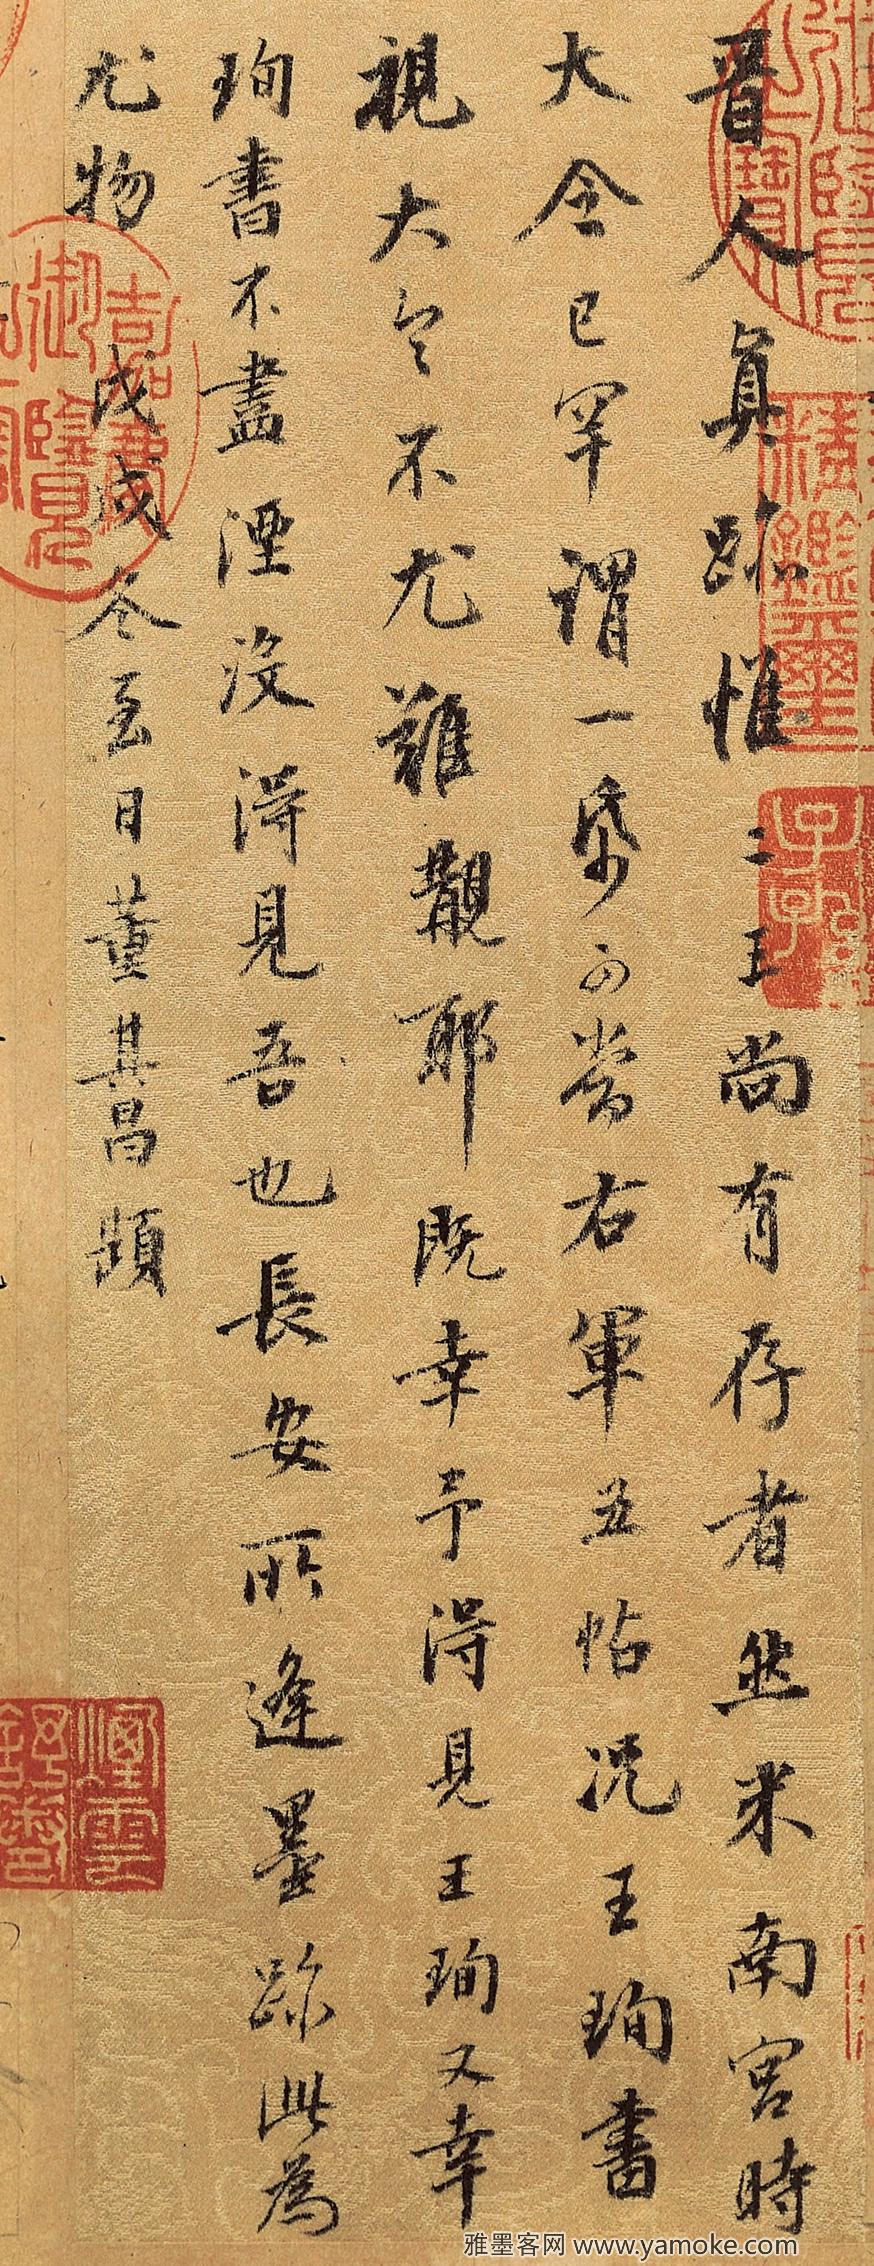 晉人真跡惟二王尚有存者然米南宮時
大令已罕謂一帋可當右軍五帖況王珣書
視大令不尤難覯耶既幸予得見王珣又幸
珣書不盡湮沒得見吾也長安所逢墨跡此為
尤物 戊戌冬至日董其昌題
嘉慶御覽
雅墨客网 www.yamoke.com